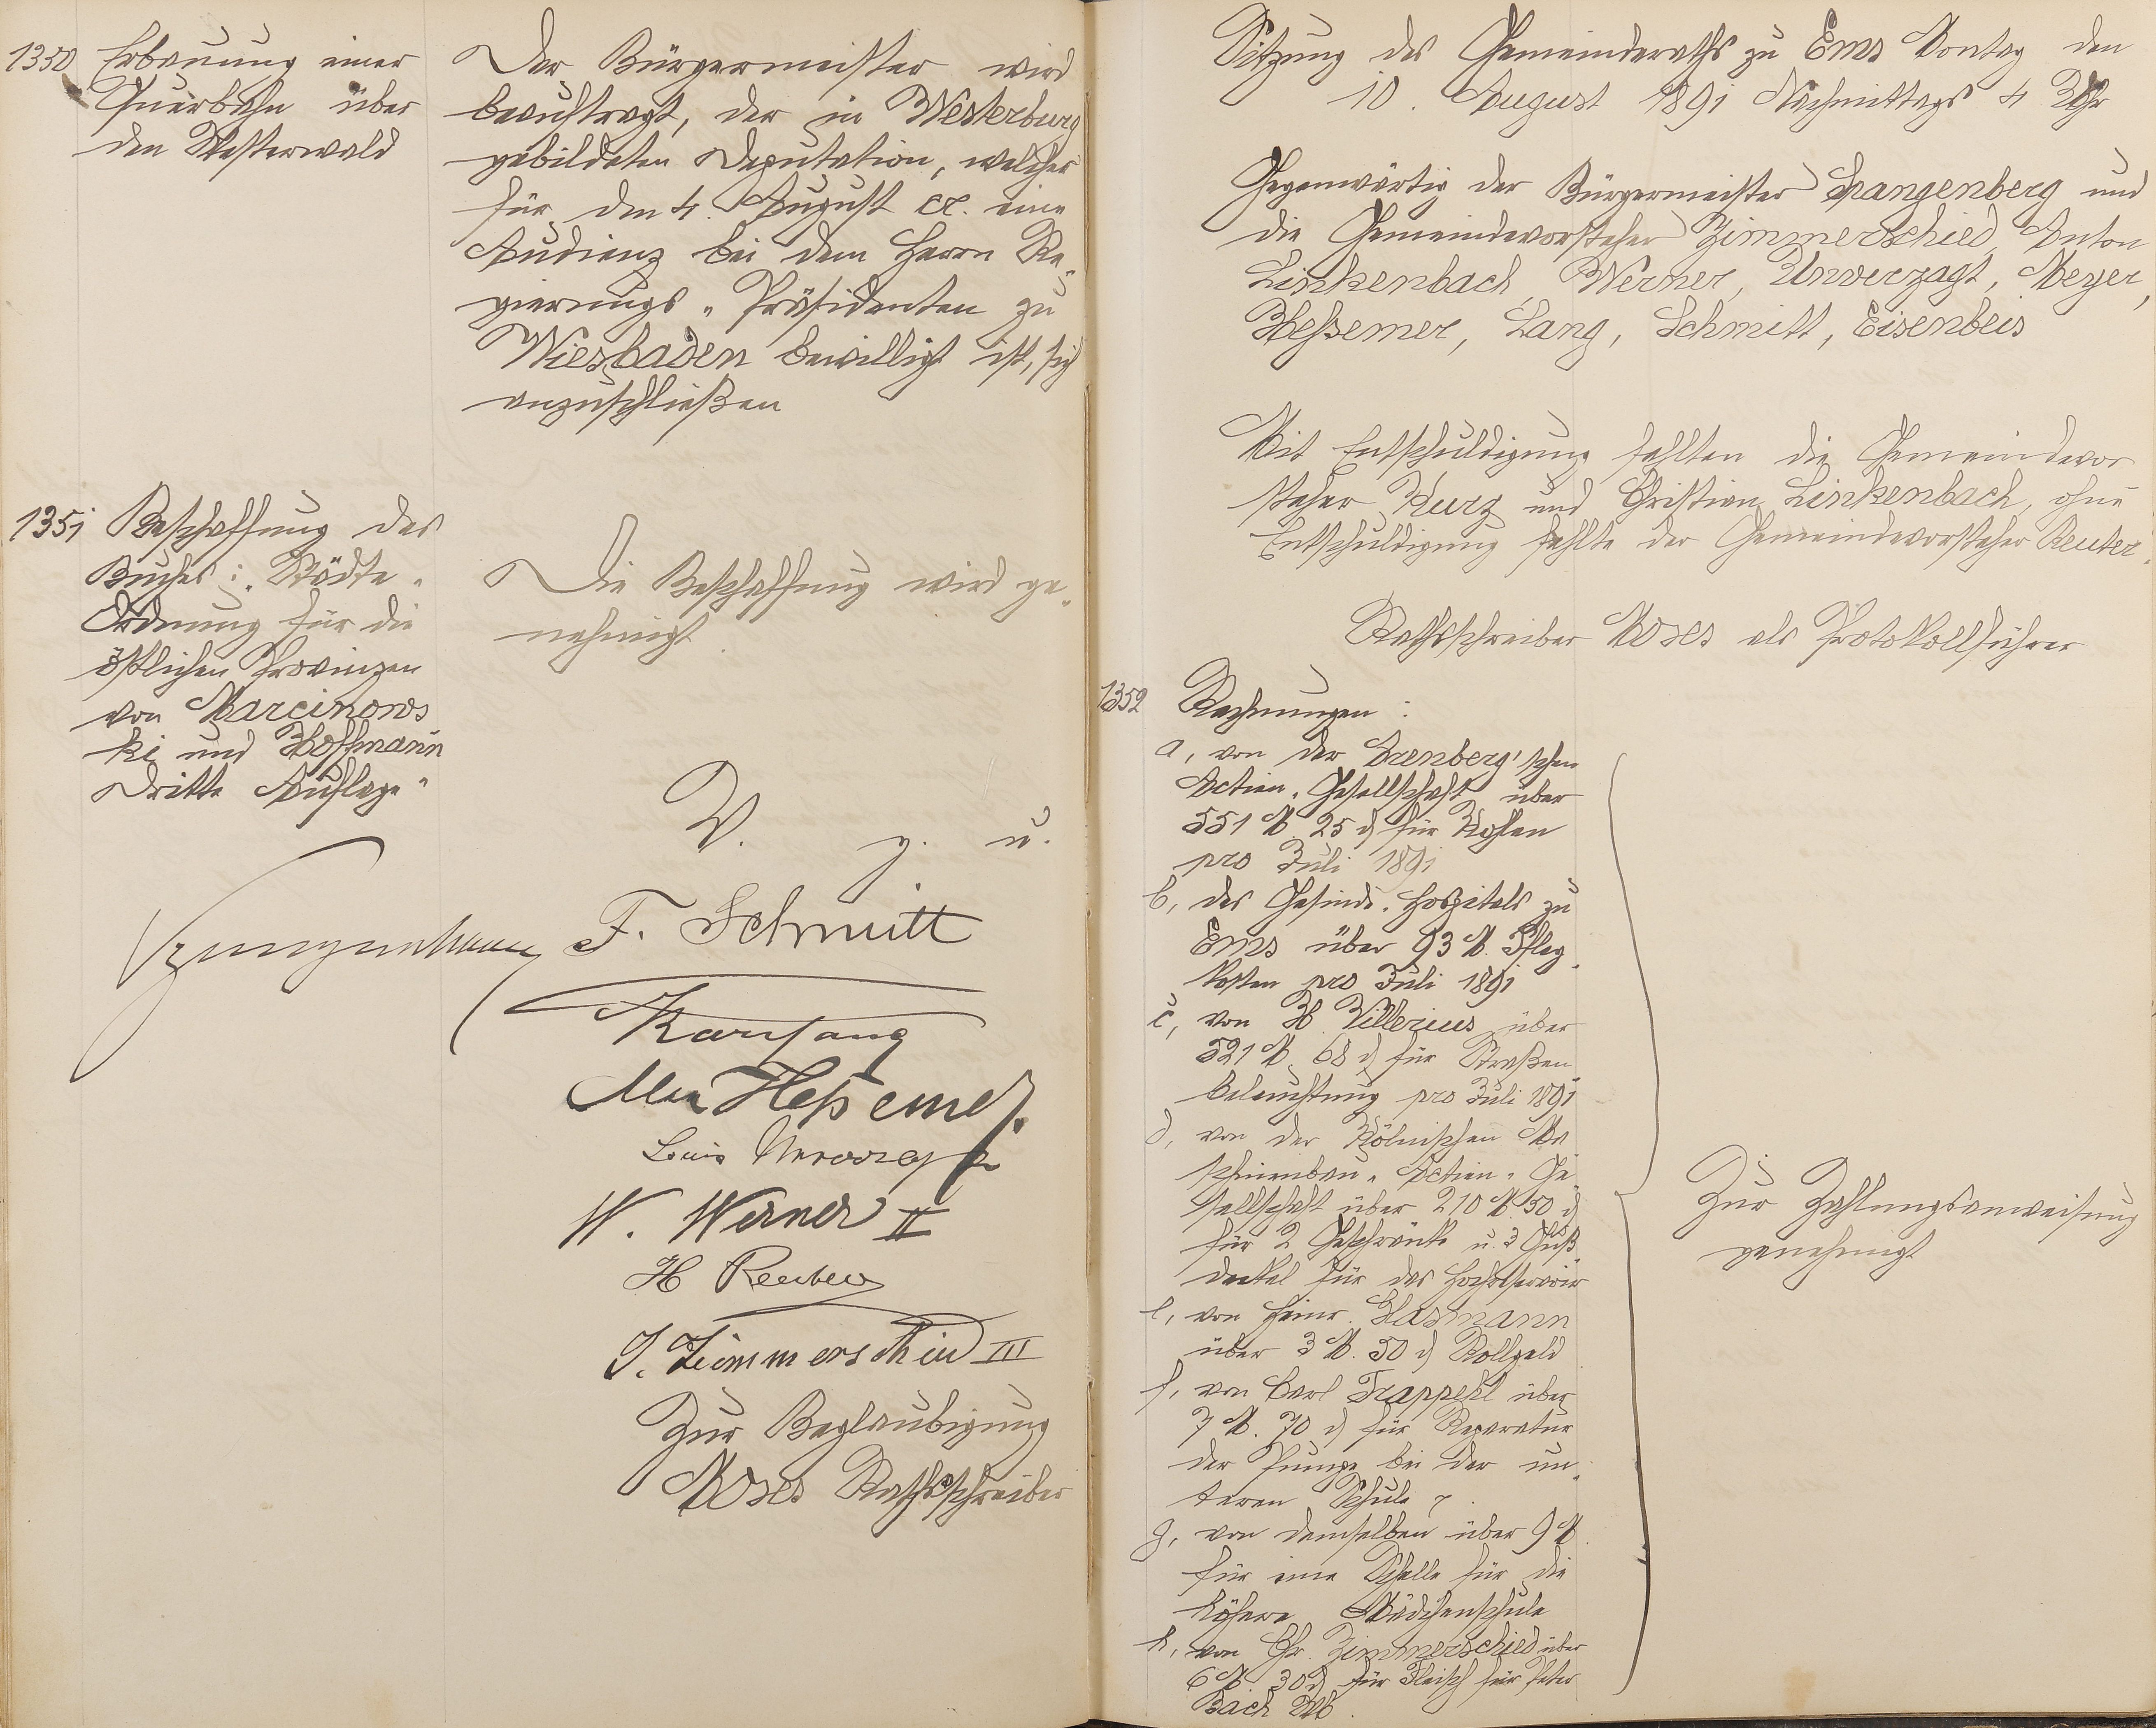 1350 Erbauung einer
Querbahn über
den Westerwald
Der Bürgermeister wird
beauftragt, der in Westerburg
gebildeten Deputation, welcher
für den 4. August cr. eine
Audienz bei dem Herrn Re„
gierungs„Präsidenten zu
Wiesbaden bewilligt ist, sich
anzuschließen
1351 Beschaffung des
Buches: „Städte„
Ordnung für die
östlichen Provinzen
von Marcinows
ki und Hoffmann
Dritte Auflage"
Die Beschaffung wird ge„
nehmigt.
V. g. u.
Spangenberg
F. Schmitt
Hessemer
Louis Unverzagt
W. Werner II
H Reuter
J. Zimmerschied III
Zur Beglaubigung
Moses Rathsschreiber
Sitzung des Gemeinderaths zu Ems Montag den
10. August 1891 Nachmittags 4 Uhr
Gegenwärtig der Bürgermeister Spangenberg und
die Gemeindevorsteher Zimmerschied, Anton
Linkenbach, Werner, Unverzagt, Meyer,
Heßemer, Lang, Schmitt, Eisenbeis
Mit Entschuldigung fehlten die Gemeindevor
steher Kurz und Christian Linkenbach, ohne
Entschuldigung fehlte der Gemeindevorsteher Reuter.
Rathsschreiber Moses als Protokollführer
1352 Rechnungen:
a, von der Arenberg'schen
Actien„Gesellschaft über
551 M. 25 d für Kohlen
pro Juli 1891
b, des Gesinde„Hospitals zu
Ems über 93 M. Pfleg„
kosten pro Juli 1891
c, von H. Villerius über
521 M. 68 d für Straßen
beleuchtung pro Juli 1891
d, von der Kölnischen Ma
schinenbau„Actien„Ge
sellschaft über 210 M. 50 d
für 2 Geschränke u. 3 Guß
deckel für das Hochreservoir
e, von Heinr. Glasmann
über 3 M. 50 d Rollgeld
f, von Carl Trappehl über
7 M. 70 d für Reparatur
der Pumpe bei der un„
teren Schule
g, von demselben über 9 M
für eine Schelle für die
höhere Mädchenschule
h, von Chr. Zimmerschied über
6 M. 30 d für Fleisch für Peter
Bach Wb.
Zur Zahlungsanweisung
genehmigt